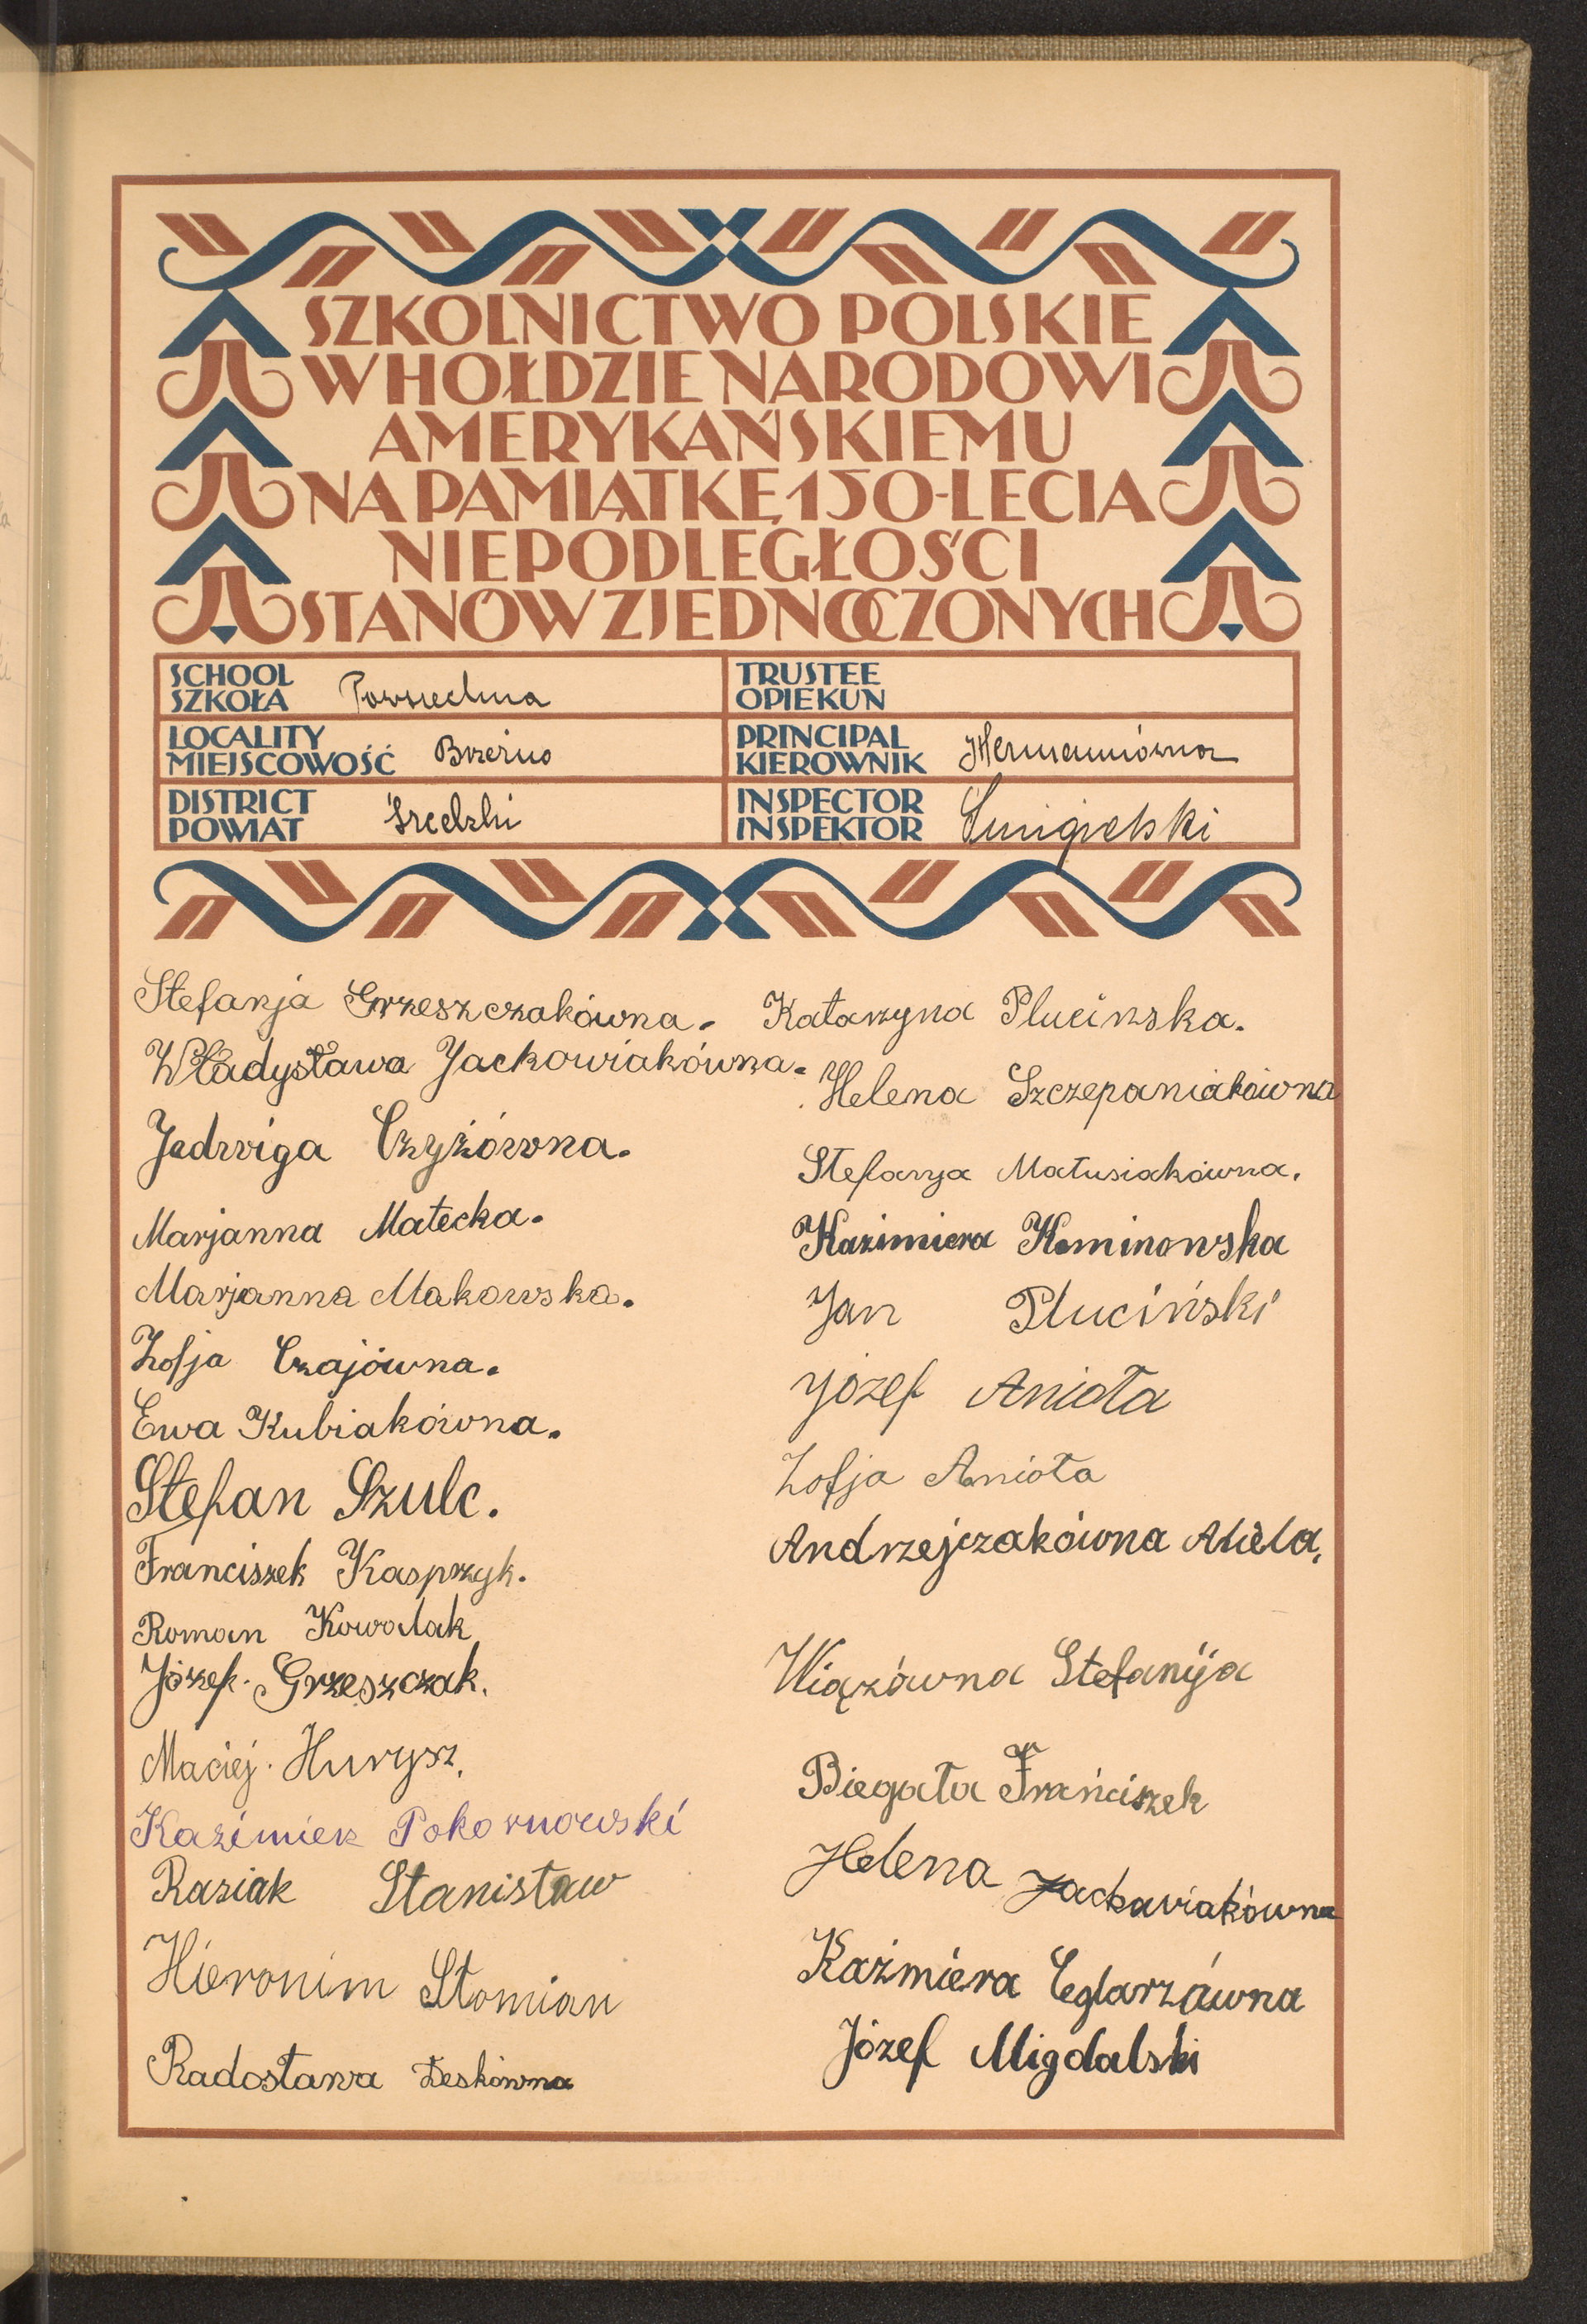 SZKOLNICTWO POLSKIE
W HOŁDZIE NARODOWI
AMERYKAŃSKIEMU
NA PAMIĄTKĘ 150-LECIA
NIEPODLEGŁOŚCI
STANÓW ZJEDNOCZONYCH
SCHOOL
SZKOŁA Powszechna
TRUSTEE
OPIEKUN
LOCALITY
MIEJSCOWOŚĆ Brzeźno
PRINCIPAL
KIEROWNIK Hermanówna
DISTRICT
POWIAT Średzki
INSPECTOR
INSPEKTOR Śmigielski
Stefanja Grzeszczakówna.
Władysława Jackowiakówna.
Jadwiga Czyżówna.
Marjanna Małecka.
Marjanna Makowska.
Zofja Czajówna.
Ewa Kubiakówna.
Stefan Szulc.
Franciszek Kasprzyk.
Roman Kowalak
Józef. Grzeszczak.
Maciej. Hurysz.
Kazimierz Pokornowski
Raziak Stanisław
Hieronim Słomian
Radosława Deskówna
Katarzyna Plucinska.
Helena Szczepaniakówna
Stefanja Matusiakówna.
Kazimiera Kominowska
Jan Pluciński
Józef Anioła
Zofja Anioła
Andrzejczakówna Aniela.
Wiązówna Stefanija
Biegała Frańciszek
Helena Jackawiakówna
Kaźmiera Ceglarzówna
Józef Migdalski